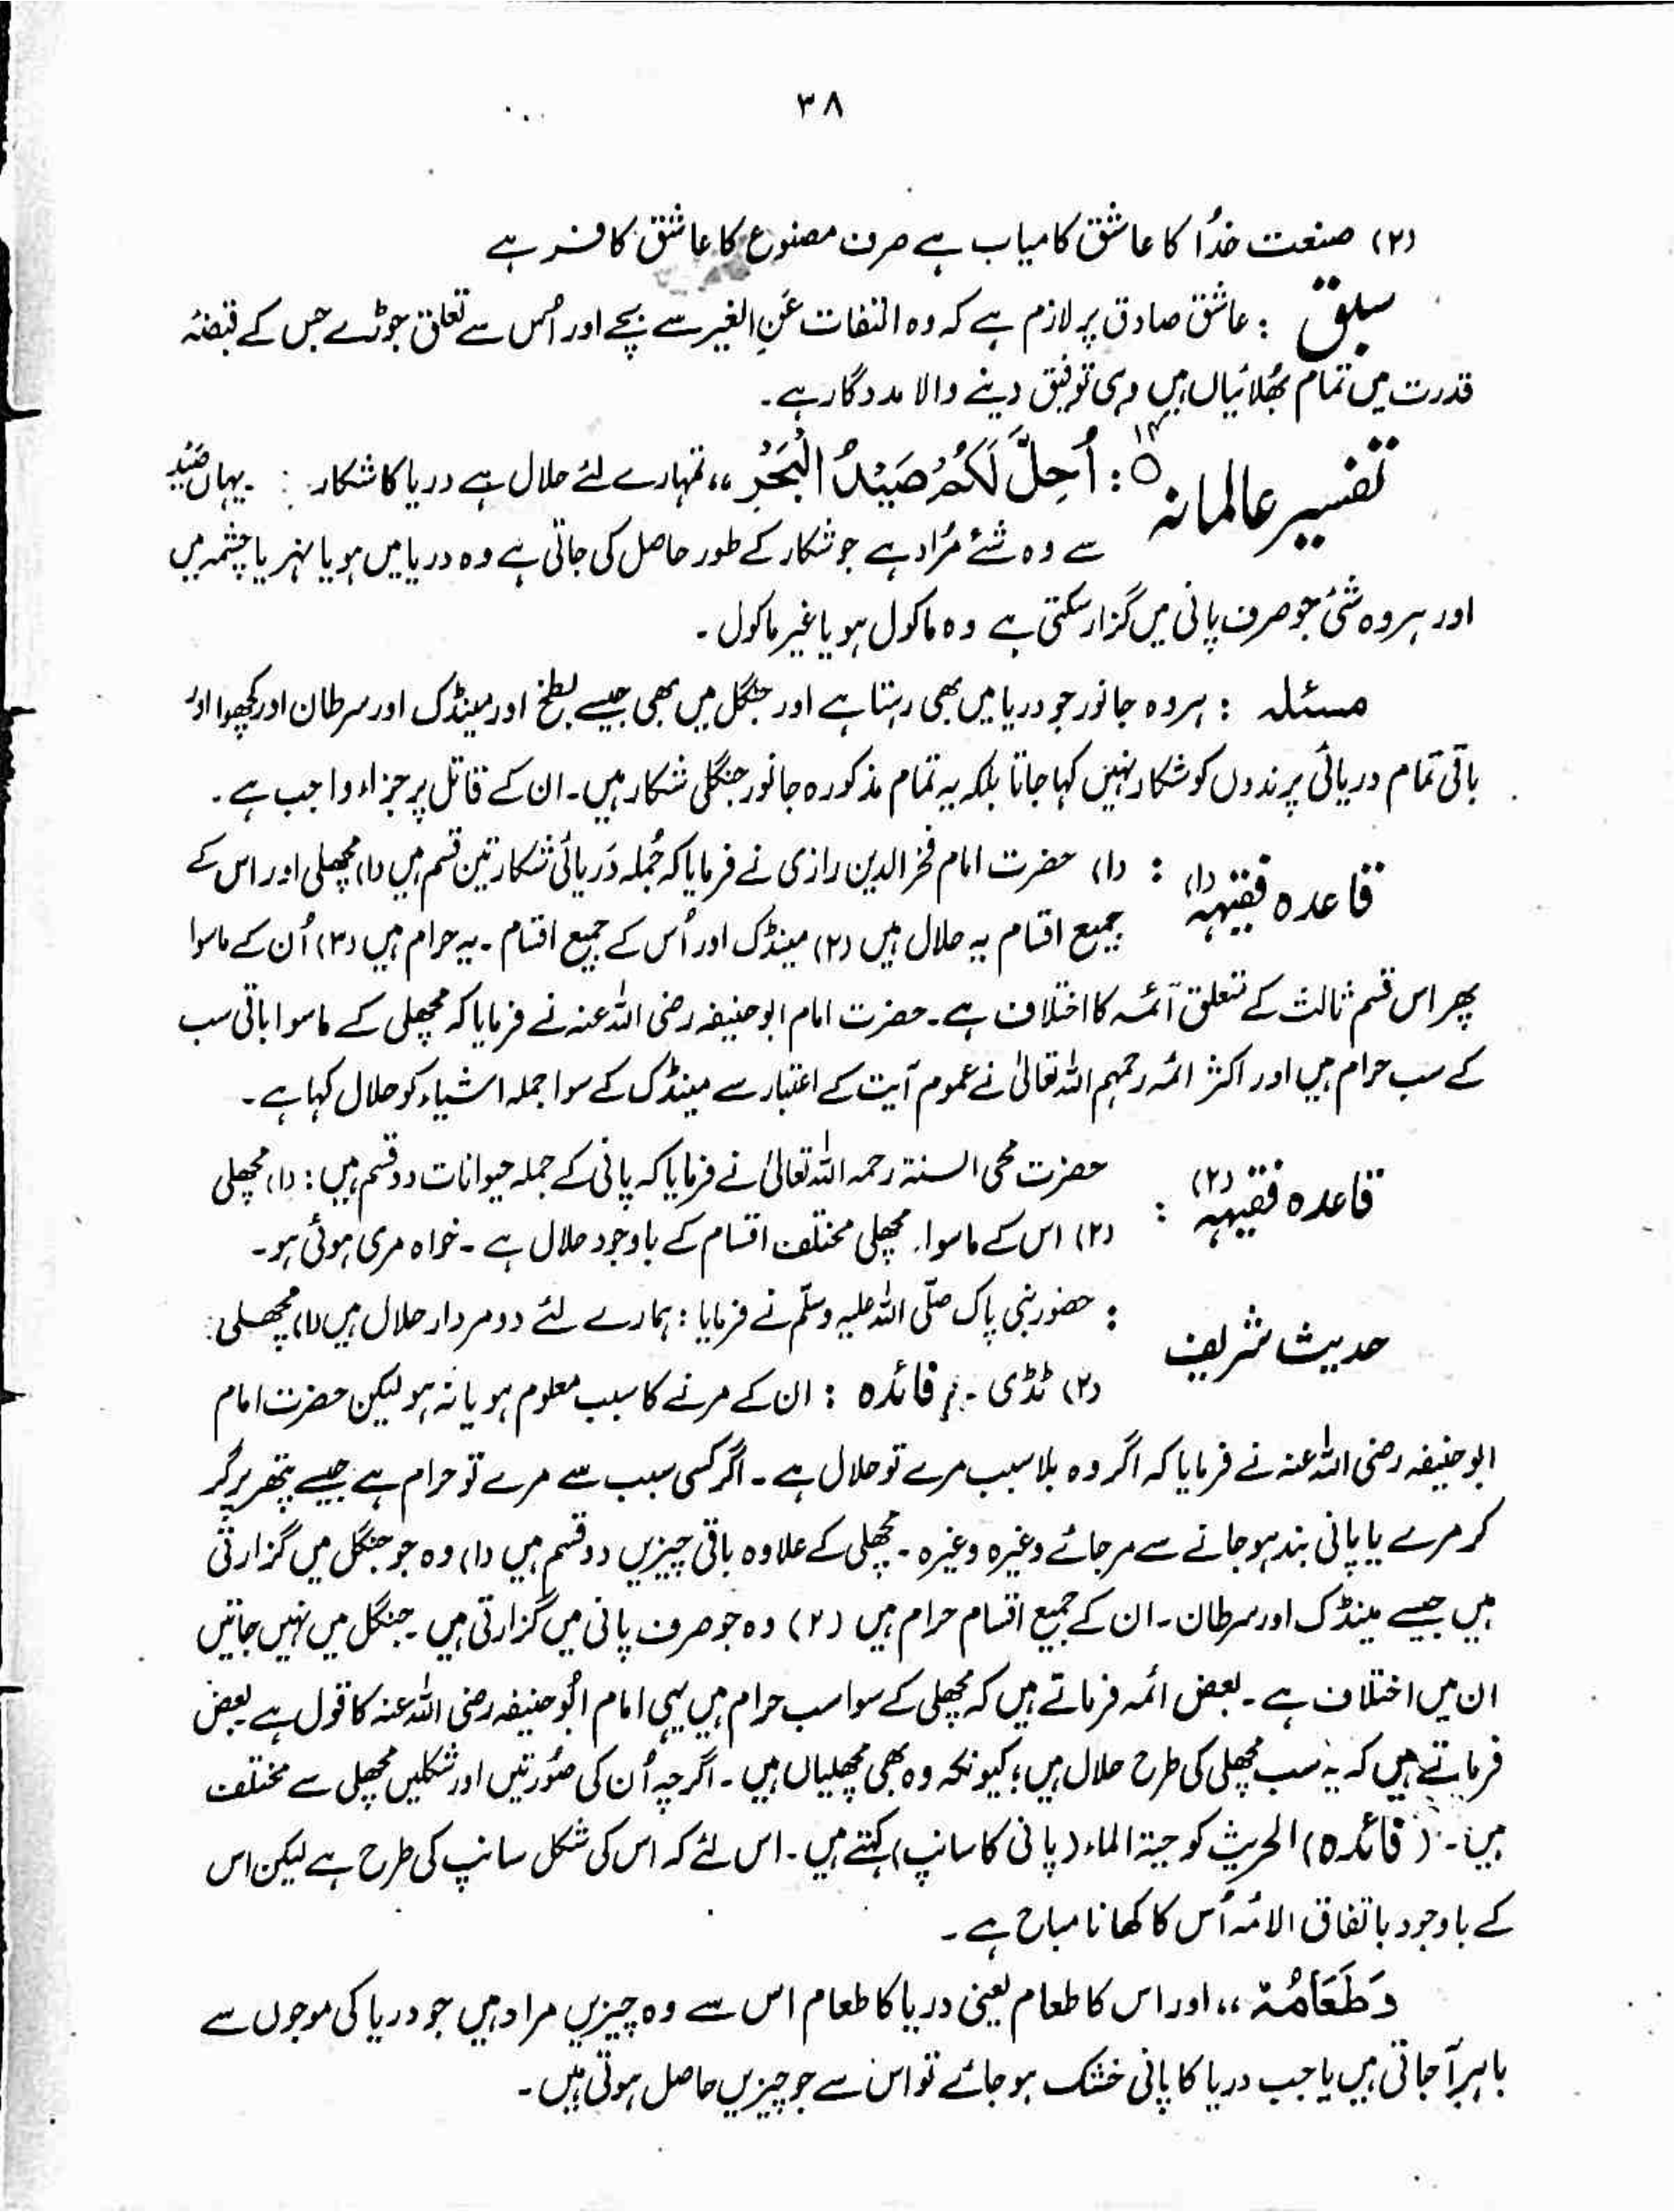 ۳۸
(۲) صنعت خدُا کا عاشق کامیاب ہے صرف مصنوع کا عاشق کافر ہے
سبق : عاشق صادق پر لازم ہے کہ وہ التفات عَنِ الغیر سے بچے اور اُس سے تعلق جوڑے جس کے قبضۂ
قدرت میں تمام بھَلائیاں ہیں وہی توفیق دینے والا مددگار ہے۔
تفسیر عالمانہ ۱۲ : اُحِلَّ لَکُمْ صَیْدُ الْبَحْرِ ،، تمہارے لئے حلال ہے دریا کا شکار : یہاں صَیْد
سے وہ شئے مُراد ہے جو شکار کے طور حاصل کی جاتی ہے وہ دریا میں ہو یا نہر یا چشمہ میں
اور ہر وہ شئ جو صرف پانی میں گزار سکتی ہے وہ ماکول ہو یا غیر ماکول ۔
مسئلہ : ہر وہ جانور جو دریا میں بھی رہتا ہے اور جنگل میں بھی جیسے بطخ اور مینڈک اور سرطان اور کچھوا اور
باقی تمام دریائی پرندوں کو شکار نہیں کہا جاتا بلکہ یہ تمام مذکورہ جانور جنگلی شکار ہیں۔ ان کے قاتل پر جزاء واجب ہے ۔
قاعدہ فقیہہ (۱) : (۱) حضرت امام فخر الدین رازی نے فرمایا کہ جُملہ دَریائی شکار تین قسم ہیں (۱) مچھلی اور اس کے
جمیع اقسام یہ حلال ہیں (۲) مینڈک اور اُس کے جمیع اقسام ۔ یہ حرام ہیں (۳) اُن کے ماسوا
پھر اس قسم ثالث کے متعلق آئمہ کا اختلاف ہے۔ حضرت امام ابوحنیفہ رضی اللہ عنہ نے فرمایا کہ مچھلی کے ماسوا باقی سب
کے سب حرام ہیں اور اکثر ائمہ رحمہم اللہ تعالیٰ نے عموم آیت کے اعتبار سے مینڈک کے سوا جملہ اشیاء کو حلال کہا ہے ۔
قاعدہ فقیہہ (۲) : حضرت محی السنۃ رحمہ اللہ تعالیٰ نے فرمایا کہ پانی کے جملہ حیوانات دو قسم ہیں : (۱) مچھلی
(۲) اس کے ماسوا۔ مچھلی مختلف اقسام کے باوجود حلال ہے ۔ خواہ مری ہوئی ہو ۔
حدیث شریف : حضور نبی پاک صلّی اللہ علیہ وسلّم نے فرمایا : ہمارے لئے دو مردار حلال ہیں (۱) مچھلی :
(۲) ٹڈی ۔ فائدہ : ان کے مرنے کا سبب معلوم ہو یا نہ ہو لیکن حضرت امام
ابوحنیفہ رضی اللہ عنہ نے فرمایا کہ اگر وہ بلا سبب مرے تو حلال ہے ۔ اگر کسی سبب سے مرے تو حرام ہے جیسے پتھر پر گر
کر مرے یا پانی بند ہو جانے سے مر جائے وغیرہ وغیرہ ۔ مچھلی کے علاوہ باقی چیزیں دو قسم ہیں (۱) وہ جو جنگل میں گزارتی
ہیں جیسے مینڈک اور سرطان۔ ان کے جمیع اقسام حرام ہیں (۲) وہ جو صرف پانی میں گزارتی ہیں۔ جنگل میں نہیں جاتیں
ان میں اختلاف ہے ۔ بعض ائمہ فرماتے ہیں کہ مچھلی کے سوا سب حرام ہیں یہی امام ابُوحنیفہ رضی اللہ عنہ کا قول ہے بعض
فرماتے ہیں کہ یہ سب مچھلی کی طرح حلال ہیں ؛ کیونکہ وہ بھی مچھلیاں ہیں ۔ اگرچہ اُن کی صُورتیں اور شکلیں مچھلی سے مختلف
ہیں ۔ (فائدہ) الحریث کو حیۃ الماء (پانی کا سانپ) کہتے ہیں ۔ اس لئے کہ اس کی شکل سانپ کی طرح ہے لیکن اس
کے باوجود باتفاق الائمہ اُس کا کھانا مباح ہے ۔
وَطَعَامُہٗ ،، اور اس کا طعام یعنی دریا کا طعام اس سے وہ چیزیں مراد ہیں جو دریا کی موجوں سے
باہر آ جاتی ہیں یا جب دریا کا پانی خشک ہو جائے تو اس سے جو چیزیں حاصل ہوتی ہیں ۔